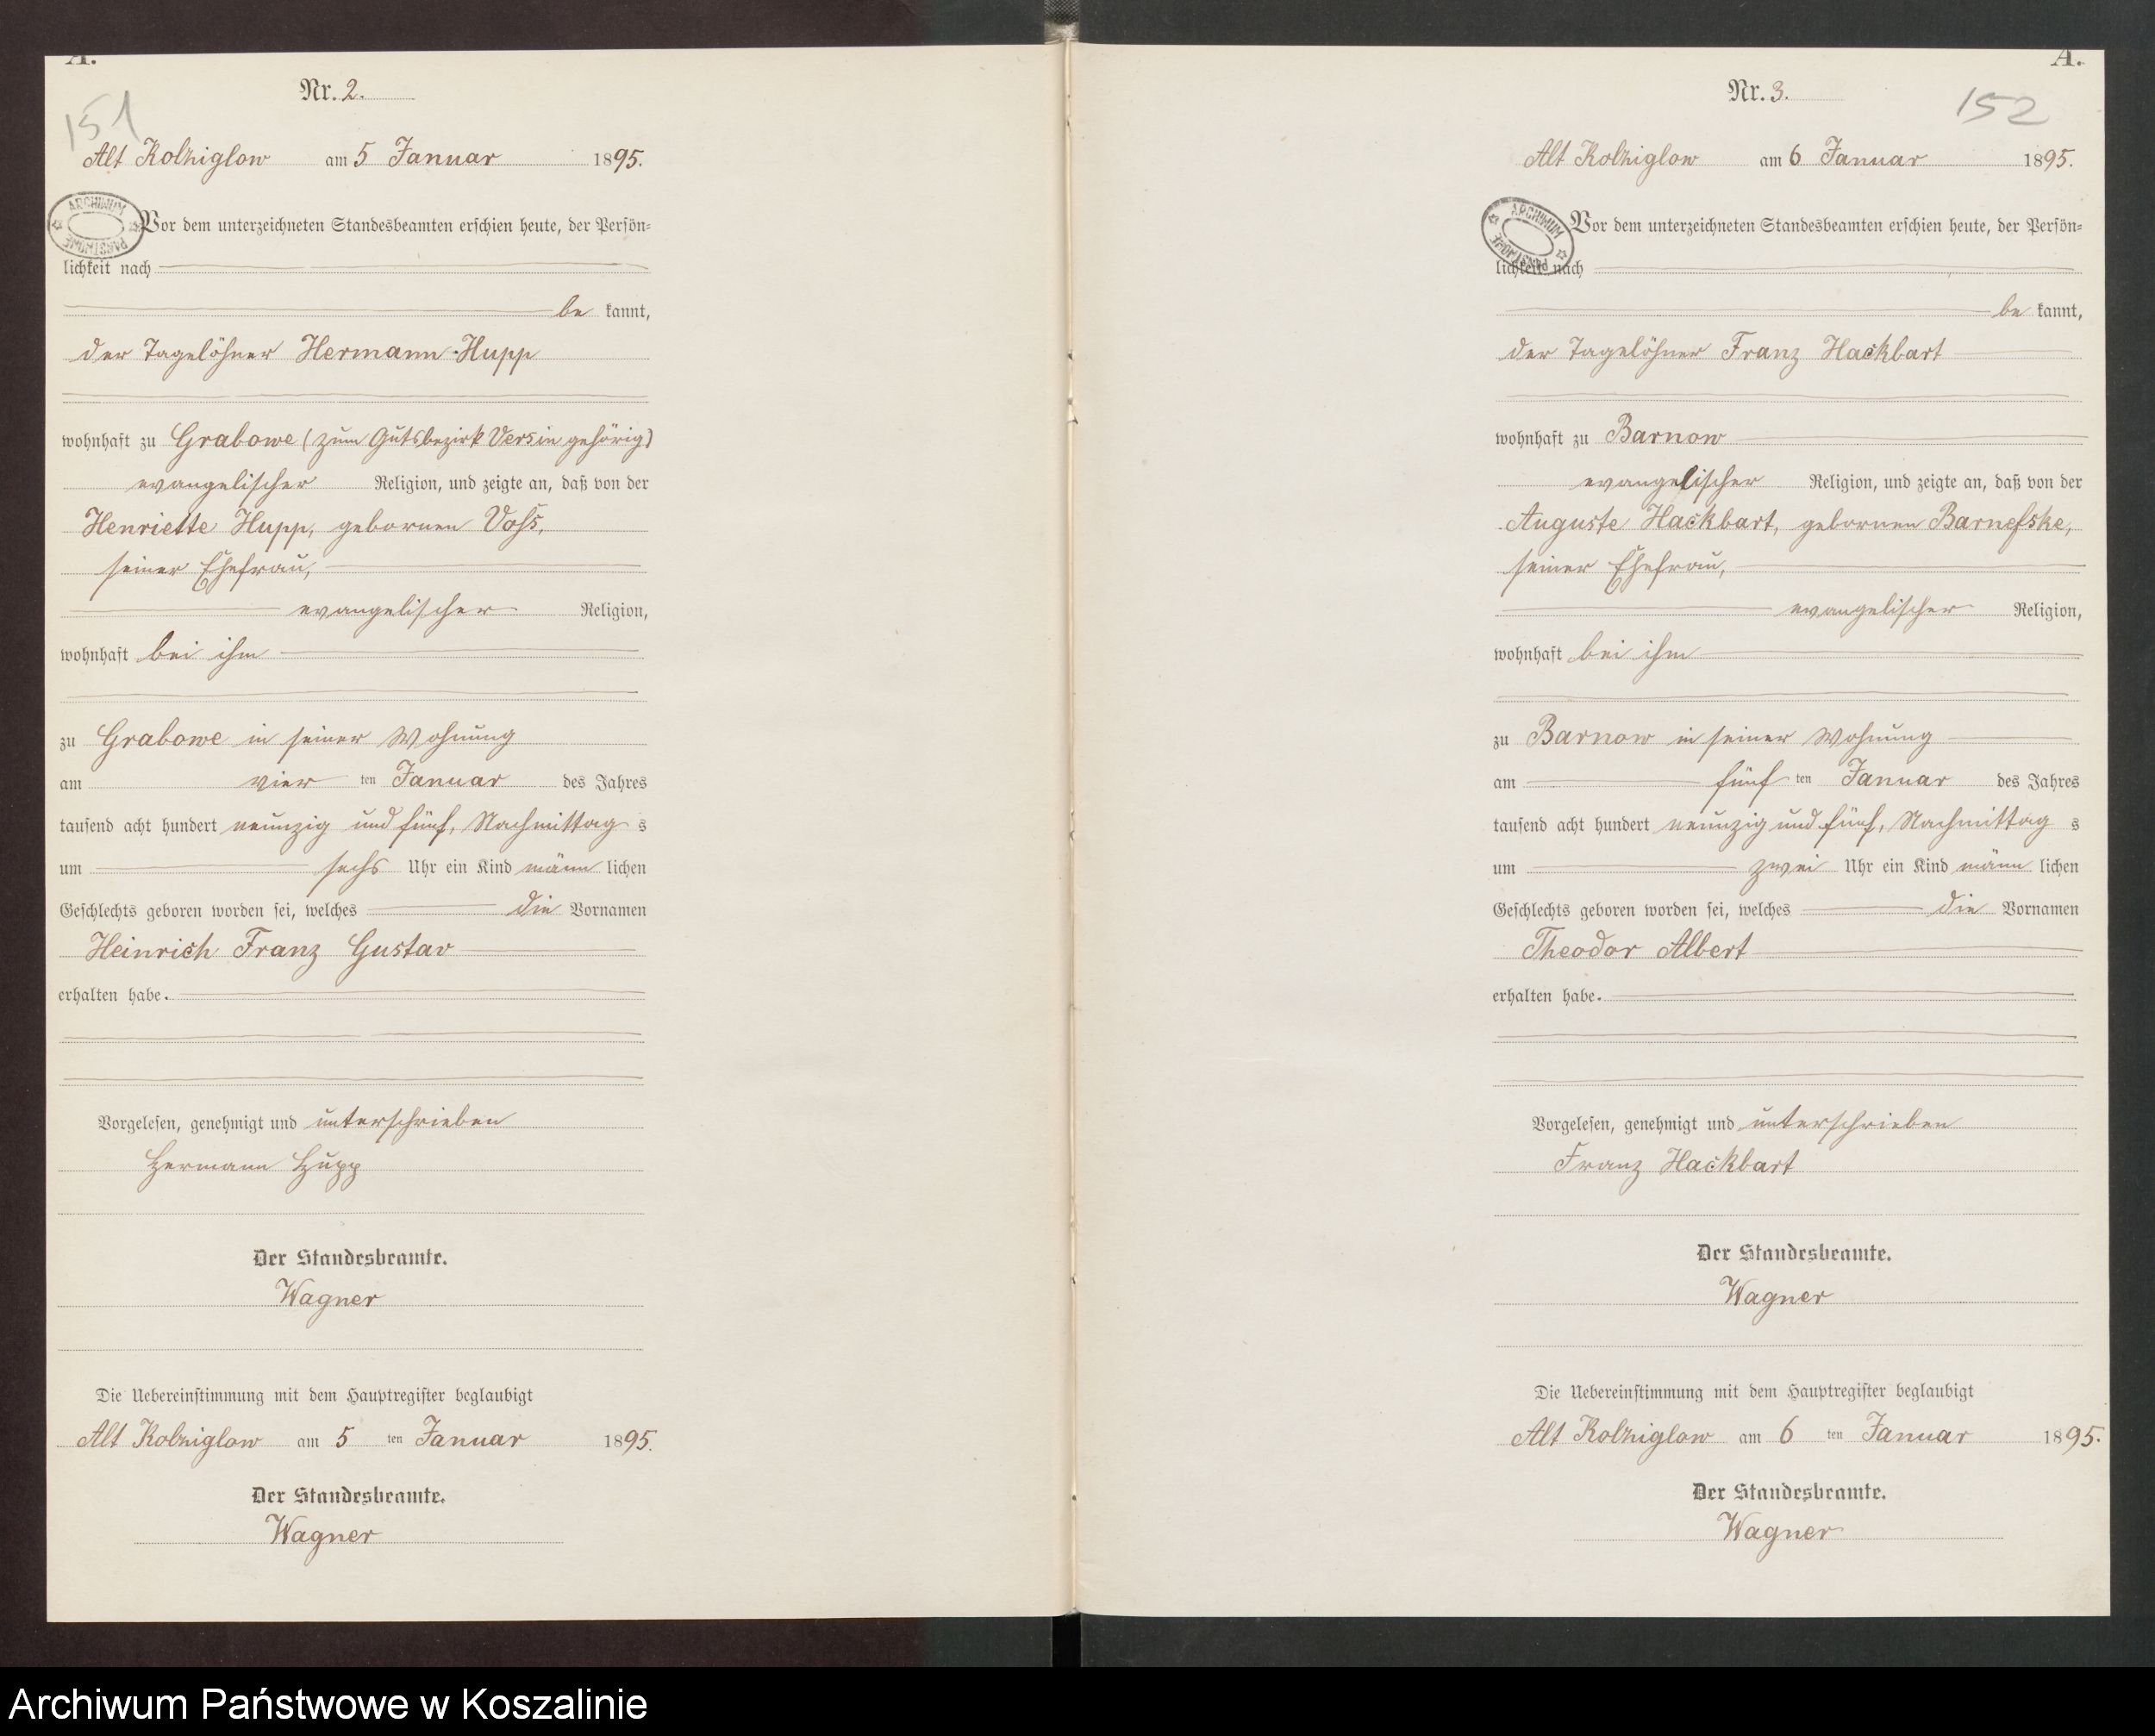 A.
Nr. 2.
151
Alt Kolziglow am 5 Januar 1895.
ARCHIWUM PAŃSTWOWE
Vor dem unterzeichneten Standesbeamten erschien heute, der Persön-
lichkeit nach
be kannt,
der Tagelöhner Hermann Hupp
wohnhaft zu Grabowe (zum Gutsbezirk Versin gehörig)
evangelischer Religion, und zeigte an, daß von der
Henriette Hupp, gebornen Voß,
seiner Ehefrau,
evangelischer Religion,
wohnhaft bei ihm
zu Grabowe in seiner Wohnung
am vier ten Januar des Jahres
tausend acht hundert neunzig und fünf, Nachmittag s
um sechs Uhr ein Kind männ lichen
Geschlechts geboren worden sei, welches die Vornamen
Heinrich Franz Gustav
erhalten habe.
Vorgelesen, genehmigt und unterschrieben
Hermann Hupp
Der Standesbeamte.
Wagner
Die Uebereinstimmung mit dem Hauptregister beglaubigt
Alt Kolziglow am 5 ten Januar 1895.
Der Standesbeamte.
Wagner
A.
Nr. 3.
152
Alt Kolziglow am 6 Januar 1895.
ARCHIWUM PAŃSTWOWE
Vor dem unterzeichneten Standesbeamten erschien heute, der Persön-
lichkeit nach
be kannt,
der Tagelöhner Franz Hackbart
wohnhaft zu Barnow
evangelischer Religion, und zeigte an, daß von der
Auguste Hackbart, gebornen Barneſske,
seiner Ehefrau,
evangelischer Religion,
wohnhaft bei ihm
zu Barnow in seiner Wohnung
am fünf ten Januar des Jahres
tausend acht hundert neunzig und fünf, Nachmittag s
um zwei Uhr ein Kind männ lichen
Geschlechts geboren worden sei, welches die Vornamen
Theodor Albert
erhalten habe.
Vorgelesen, genehmigt und unterschrieben
Franz Hackbart
Der Standesbeamte.
Wagner
Die Uebereinstimmung mit dem Hauptregister beglaubigt
Alt Kolziglow am 6 ten Januar 1895.
Der Standesbeamte.
Wagner
Archiwum Państwowe w Koszalinie